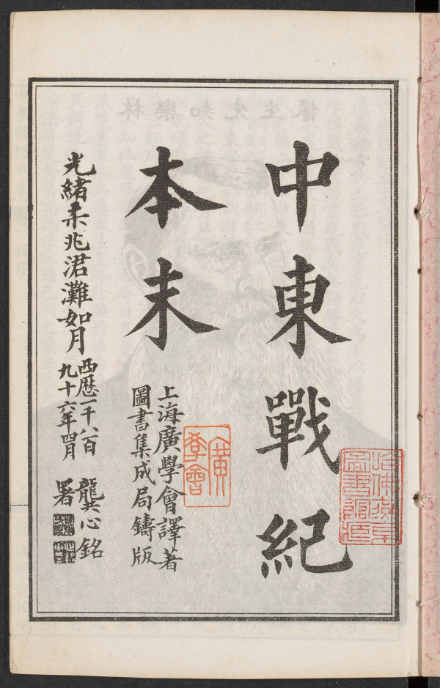 中東戰紀
本末
上海廣學會譯著
圖書集成局鑄版
廣學會
光緒柔兆涒灘如月
西歷一千八百
九十六年四月
龔心銘
署